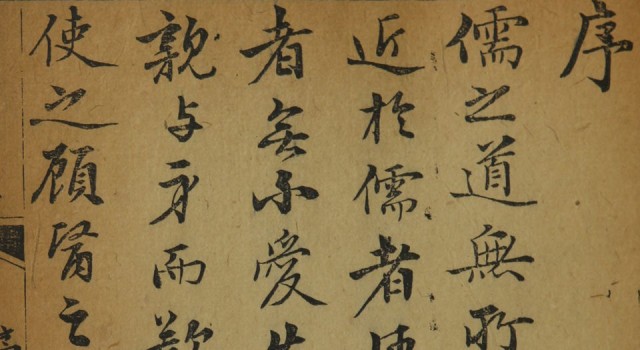 序
儒之道無所
近於儒者
者無不愛
親与身而
使之顧賢之